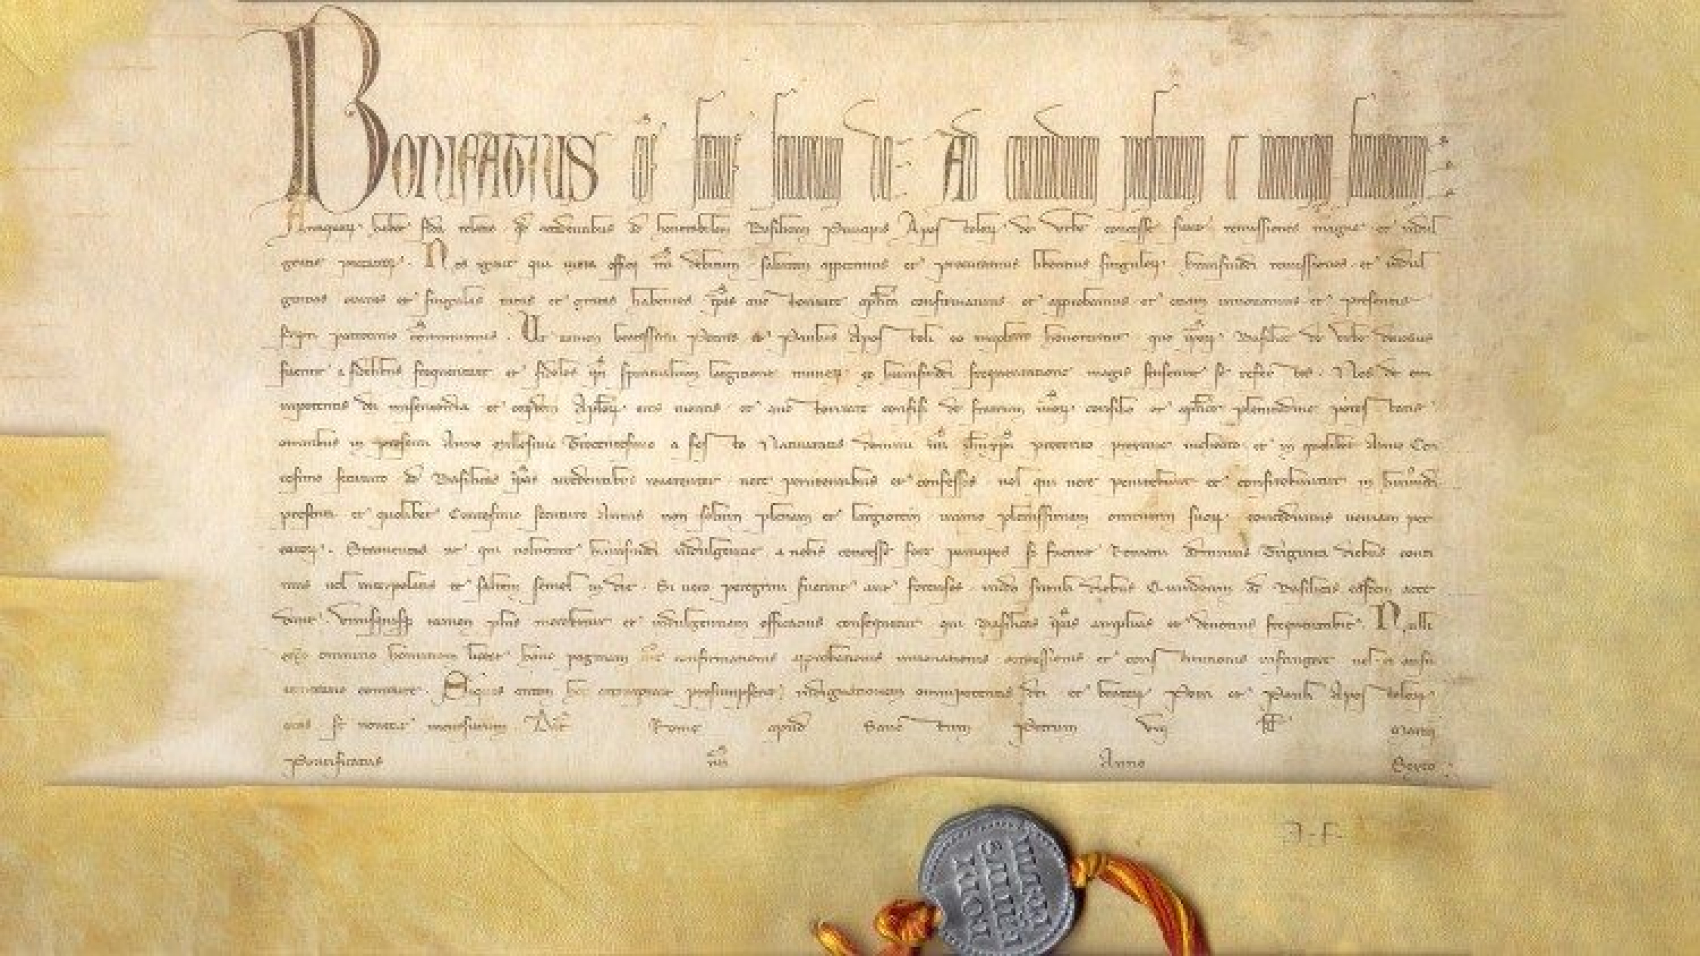 BONIFATIUS eps seruus seruorum dei Ad certitudinem presentium et memoriam futurorum
Antiquor habet fida relatio qd accedentibus ad honorabilem Basilicam Principis Apostolor de Urbe concesse sunt remissiones magne et indul
gentie peccator. Nos igitur qui iuxta officij nri debitum salutem appetimus et procuramus libentius singulor huiusmodi remissiones et indul
gentias omnes et singulas ratas et gratas habentes ipsas auc toritate aplica confirmamus et approbamus et etiam innouamus et presentis
scripti patrocinio communimus. Ut autem beatissimi Petrus et Paulus Apos toli eo amplius honorentur quo ipsor Basilice de Urbe deuotius
fuerint a fidelibus frequentate et fideles ipsi spiritualium largitione muner ex huiusmodi frequentatione magis senserint se refer tos. Nos de om
nipotentis dei misericordia et eordem Aplor eius meritis et auc toritate confisi de fratrum nror consilio et aplice plenitudine potes tatis
omnibus in presenti Anno Millesimo Trecentesimo a fes to Natiuitatis domini nri ihu xpi preterito proxime inchoato et in quolibet Anno Cen
tesimo secuturo ad Basilicas ipsas accedentibus reuerenter uere penitentibus et confessis uel qui uere penitebunt et confitebuntur in huiusmodi
presenti et quolibet Centesimo secuturo Annis non solum plenam et largiorem immo plenissimam omnium suor concedimus ueniam pec
cator. Statuentes ut qui uoluerint huiusmodi indulgentie a nobis concesse fore participes si fuerint Romani ad minus Triginta diebus conti
nuis uel interpolatis et saltem semel in die. Si uero peregrini fuerint aut forenses modo simili diebus Quindecim ad Basilicas easdem acce
dant. Unusquisq tamen plus merebitur et indulgentiam efficacius consequetur qui Basilicas ipsas amplius et deuotius frequentabit. Nulli
ergo omnino hominum liceat hanc paginam nre confirmationis approbationis innouationis concessionis et cons titutionis infringere uel ei ausu
temerario contraire. Siquis autem hoc attemptare presumpserit indignationem omnipotentis dei et beator Petri et Pauli Apos tolor
eius se nouerit incursurum. Dat Rome apud Sanc tum Petrum viij kl Martij
Pontificatus nri Anno Sexto